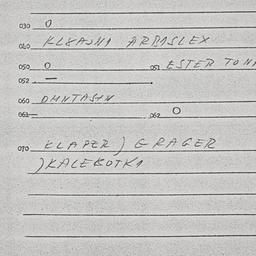 030 O
040 KLXAJNI ARBISLEX
050 O 051 ESTER TONI
052 —
060 OMNTASIN
061 — 062 O
070 KLAPER) GRAGER
)KALEBOTKA